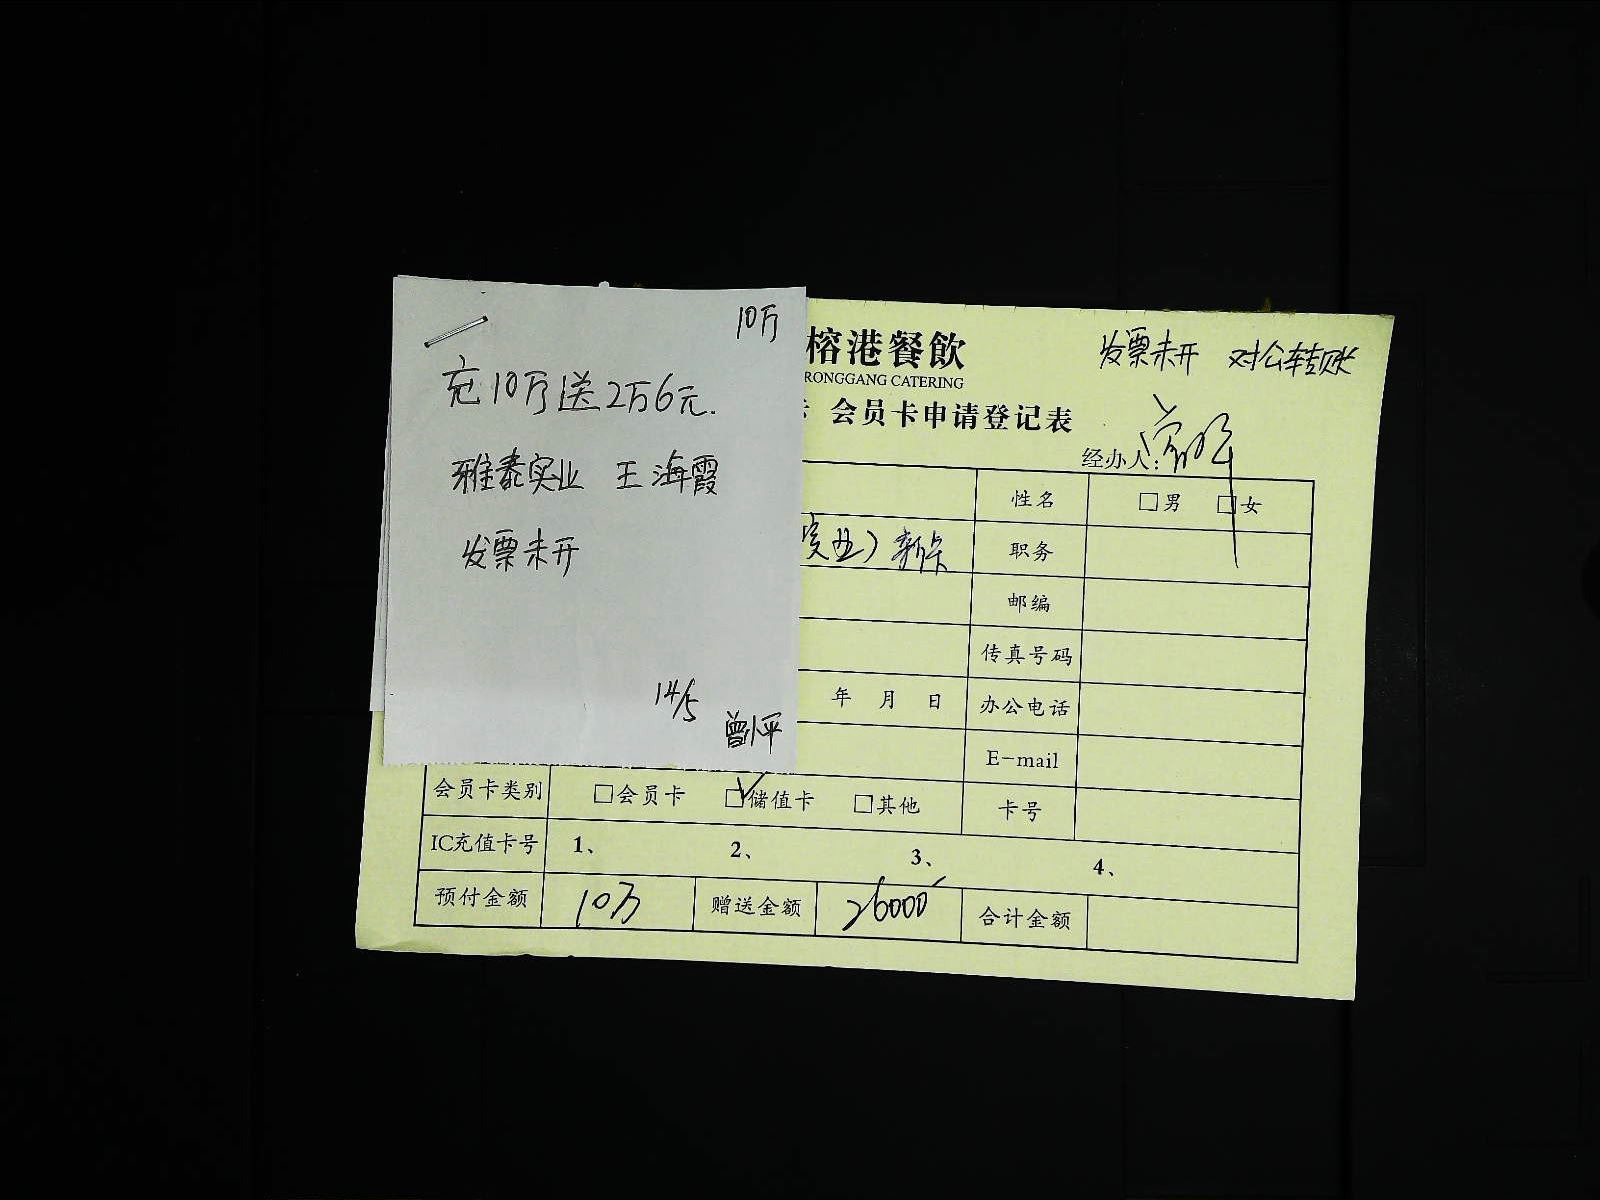 10万
充10万送2万6元.
雅泰实业 王海霞
发票未开
14/5
曾小平
榕港餐飲
RONGGANG CATERING
发票未开 对公转账
会员卡申请登记表
经办人:
性名 □男 □女
实业) 新卡 职务
邮编
传真号码
年 月 日 办公电话
E-mail
会员卡类别 □会员卡 ☑储值卡 □其他 卡号
IC充值卡号 1、 2、 3、 4、
预付金额 10万 赠送金额 26000 合计金额